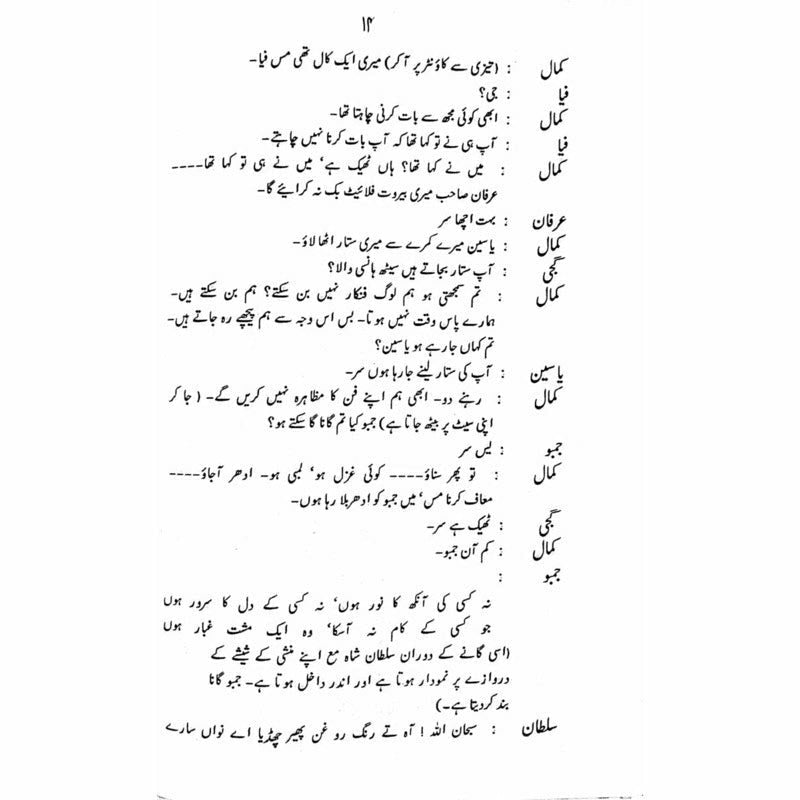 ۱۴
کمال : (تیزی سے کاؤنٹر پر آ کر) میری ایک کال تھی مس فیا۔
فیا : جی؟
کمال : ابھی کوئی مجھ سے بات کرنی چاہتا تھا۔
فیا : آپ ہی نے تو کہا تھا کہ آپ بات کرنا نہیں چاہتے۔
کمال : میں نے کہا تھا؟ ہاں ٹھیک ہے‘ میں نے ہی تو کہا تھا۔۔۔۔
عرفان صاحب میری بیروت فلائیٹ بک نہ کرائیے گا۔
عرفان : بہت اچھا سر
کمال : یاسین میرے کمرے سے میری ستار اٹھا لاؤ۔
گجی : آپ ستار بجاتے ہیں سیٹھ ہانسی والا؟
کمال : تم سمجھتی ہو ہم لوگ فنکار نہیں بن سکتے؟ ہم بن سکتے ہیں۔
ہمارے پاس وقت نہیں ہوتا۔ بس اس وجہ سے ہم پیچھے رہ جاتے ہیں۔
تم کہاں جا رہے ہو یاسین؟
یاسین : آپ کی ستار لینے جا رہا ہوں سر۔
کمال : رہنے دو۔ ابھی ہم اپنے فن کا مظاہرہ نہیں کریں گے۔ (جا کر
اپنی سیٹ پر بیٹھ جاتا ہے) جمبو کیا تم گانا گا سکتے ہو؟
جمبو : یس سر
کمال : تو پھر سناؤ۔۔۔۔ کوئی غزل ہو‘ لمبی ہو۔ ادھر آ جاؤ۔۔۔۔
معاف کرنا مس‘ میں جمبو کو ادھر بلا رہا ہوں۔
گجی : ٹھیک ہے سر۔
کمال : کم آن جمبو۔
جمبو :
نہ کسی کی آنکھ کا نور ہوں‘ نہ کسی کے دل کا سرور ہوں
جو کسی کے کام نہ آسکا‘ وہ ایک مشت غبار ہوں
(اسی گانے کے دوران سلطان شاہ مع اپنے منشی کے شیشے کے
دروازے پر نمودار ہوتا ہے اور اندر داخل ہوتا ہے۔ جمبو گانا
بند کر دیتا ہے۔)
سلطان : سبحان اللہ! آہ تے رنگ روغن پھیر چھڈیا اے نواں سارے